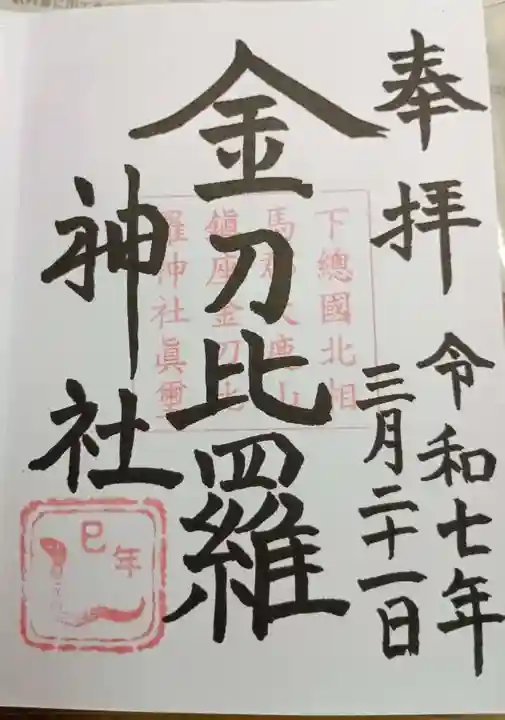 奉拝
令和七年
三月二十一日
金刀比羅
神社
下總國北相
馬郡大鹿山
鎭座金刀比
羅神社眞璽
巳年